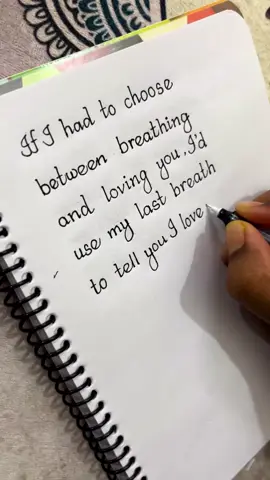 If I had to choose
between breathing
and loving you, I'd
use my last breath
to tell you I love